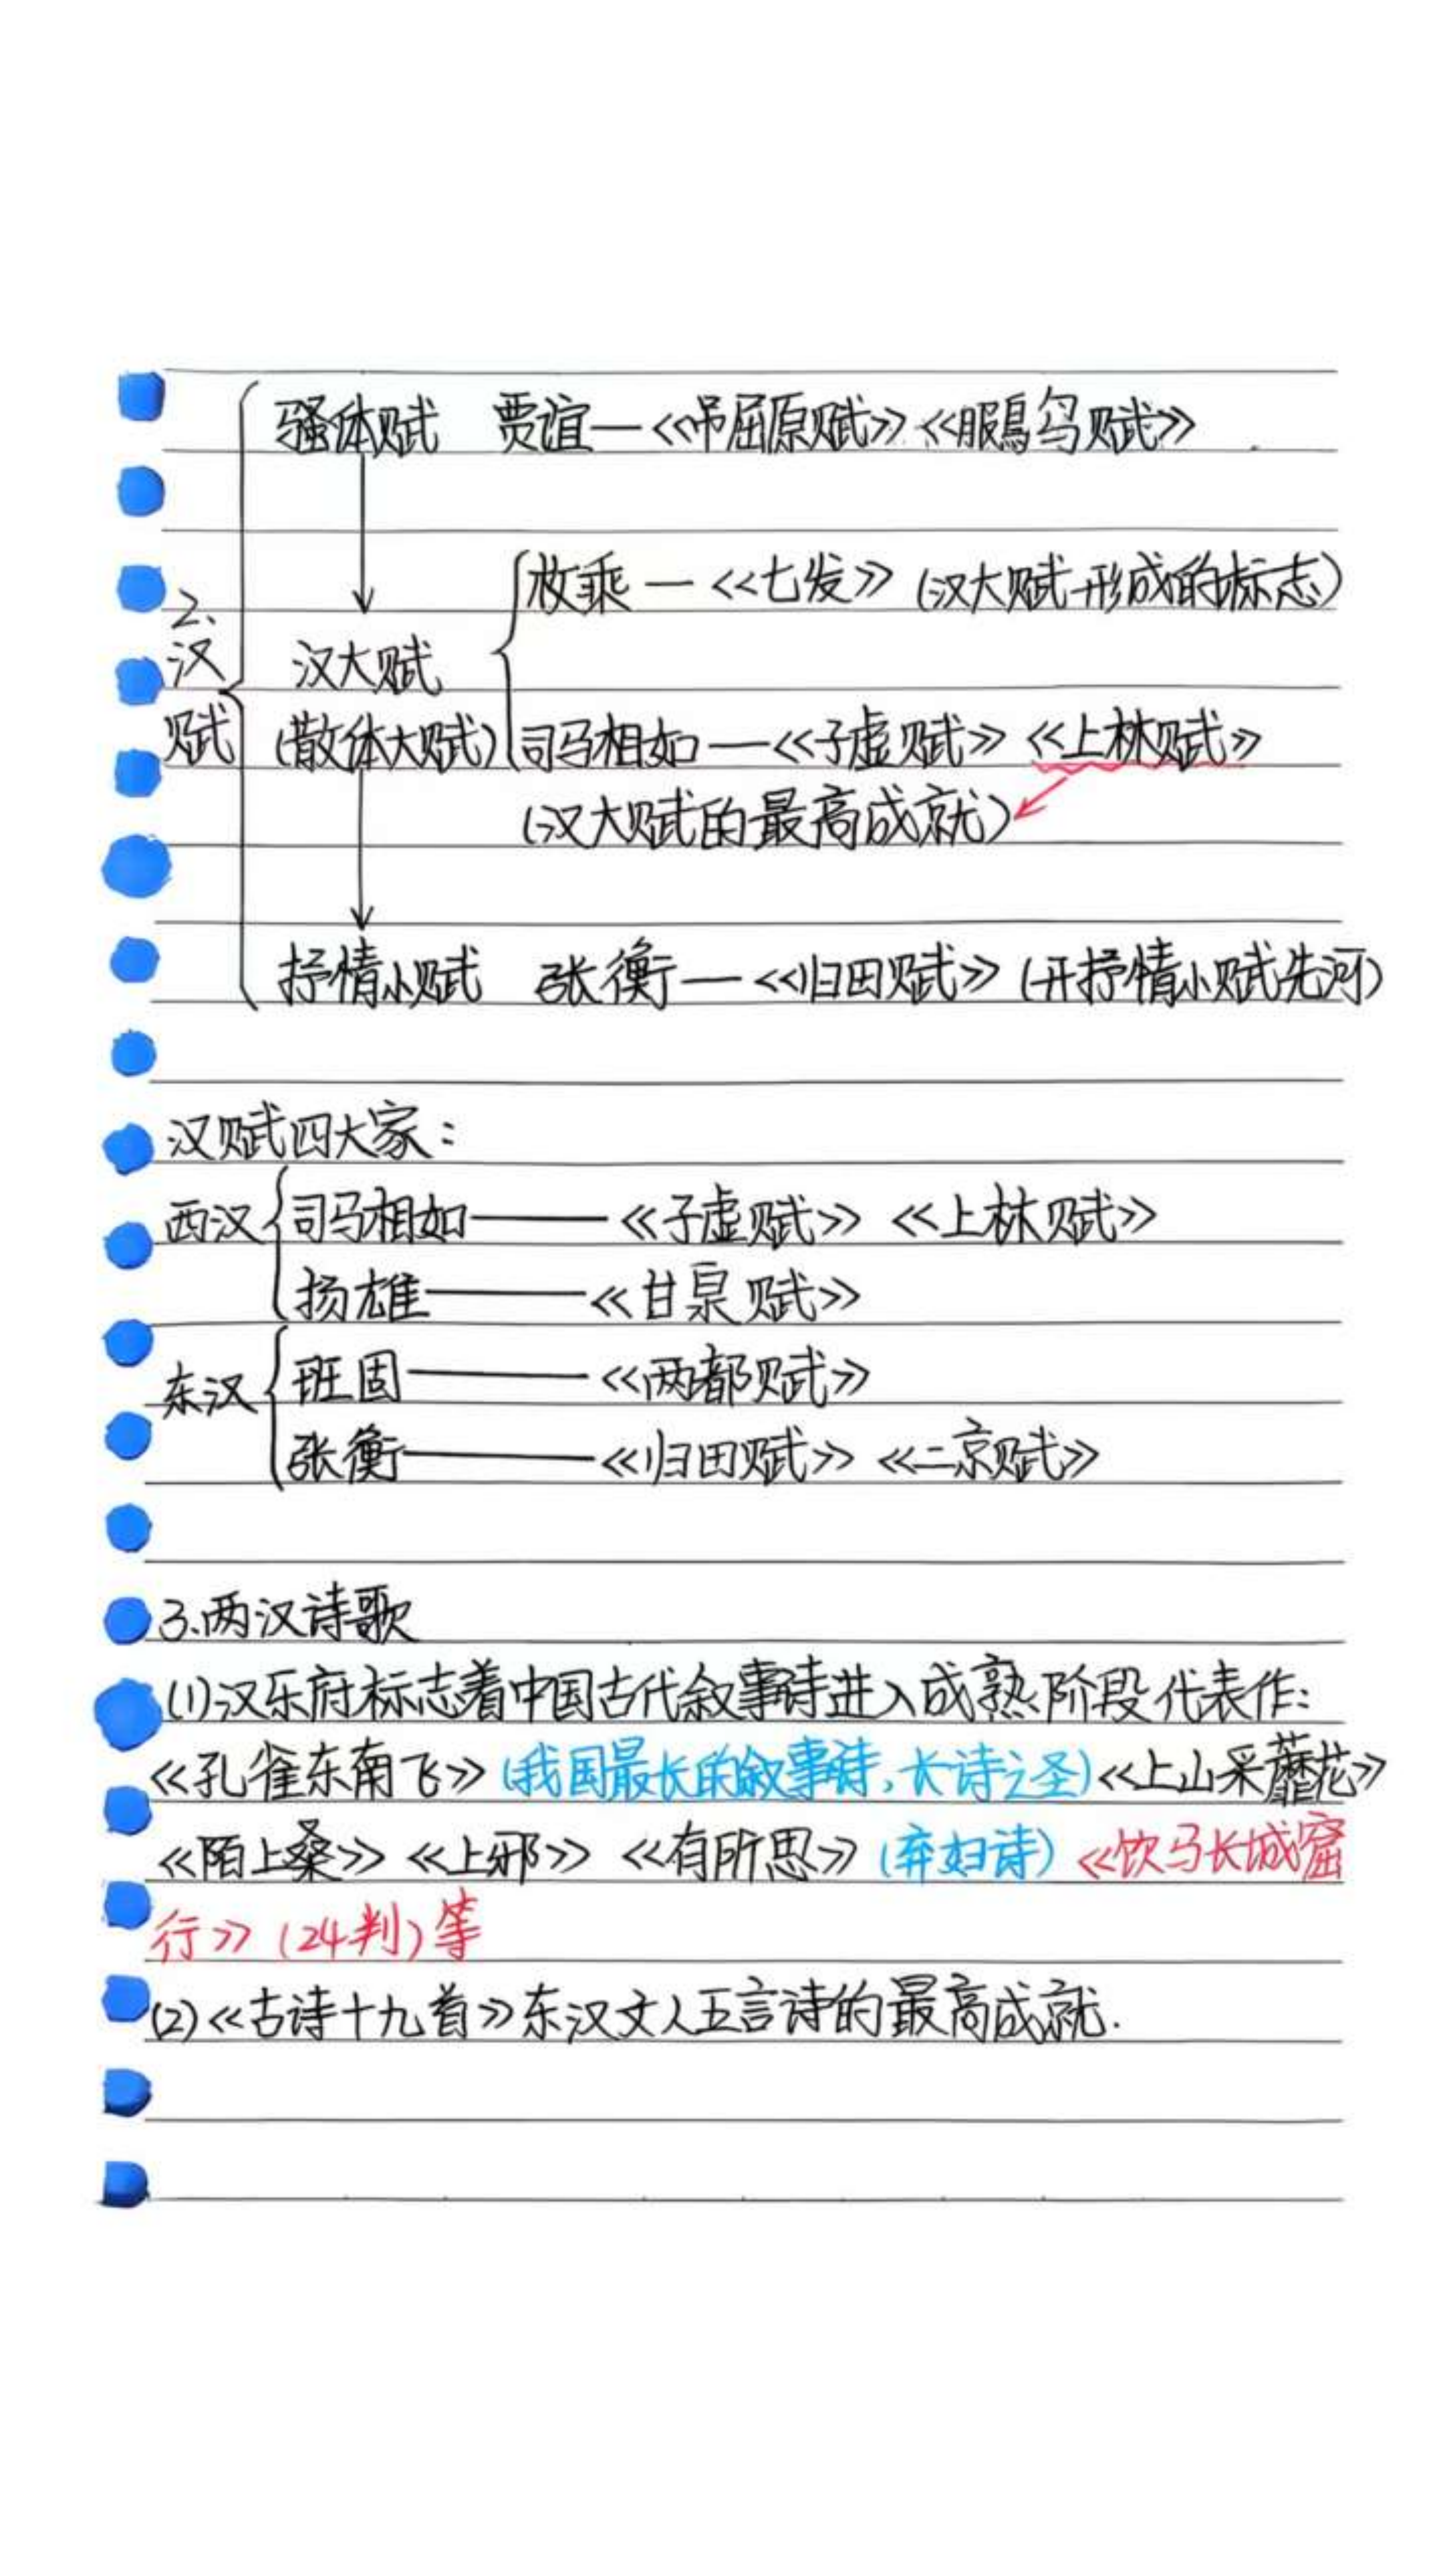 骚体赋 贾谊—《吊屈原赋》《鵩鸟赋》
2、汉赋
枚乘—《七发》(汉大赋形成的标志)
汉大赋
(散体大赋) 司马相如—《子虚赋》《上林赋》
(汉大赋的最高成就)
抒情小赋 张衡—《归田赋》(开抒情小赋先河)
汉赋四大家:
西汉 司马相如——《子虚赋》《上林赋》
扬雄——《甘泉赋》
东汉 班固——《两都赋》
张衡——《归田赋》《二京赋》
3.两汉诗歌
(1)汉乐府标志着中国古代叙事诗进入成熟阶段代表作:
《孔雀东南飞》(我国最长的叙事诗,长诗之圣)《上山采蘼芜》
《陌上桑》《上邪》《有所思》(弃妇诗)《饮马长城窟
行》(24判)等
(2)《古诗十九首》东汉文人五言诗的最高成就.